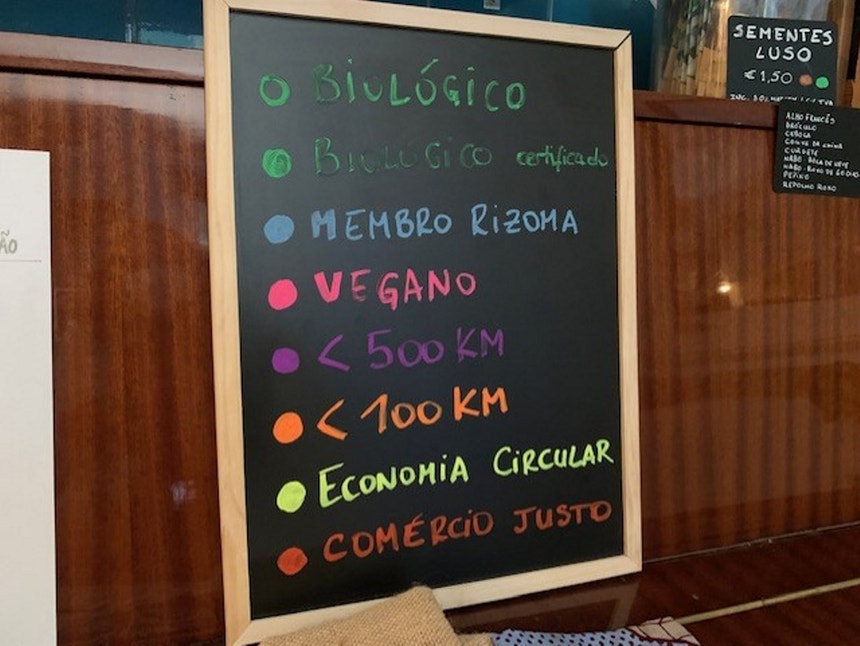 BIOLÓGICO
BIOLÓGICO certificado
MEMBRO RIZOMA
VEGANO
< 500 KM
< 100 KM
ECONOMIA CIRCULAR
COMÉRCIO JUSTO
ÃO
SEMENTES
LUSO
€ 1,50
ALHO FRANCÊS
BRÓCULO
CEBOLA
COUVE DA CHINA
CURGETE
NABO BOLA DE NEVE
NABO ROXO DE 60 DIAS
PEPINO
REPOLHO ROXO